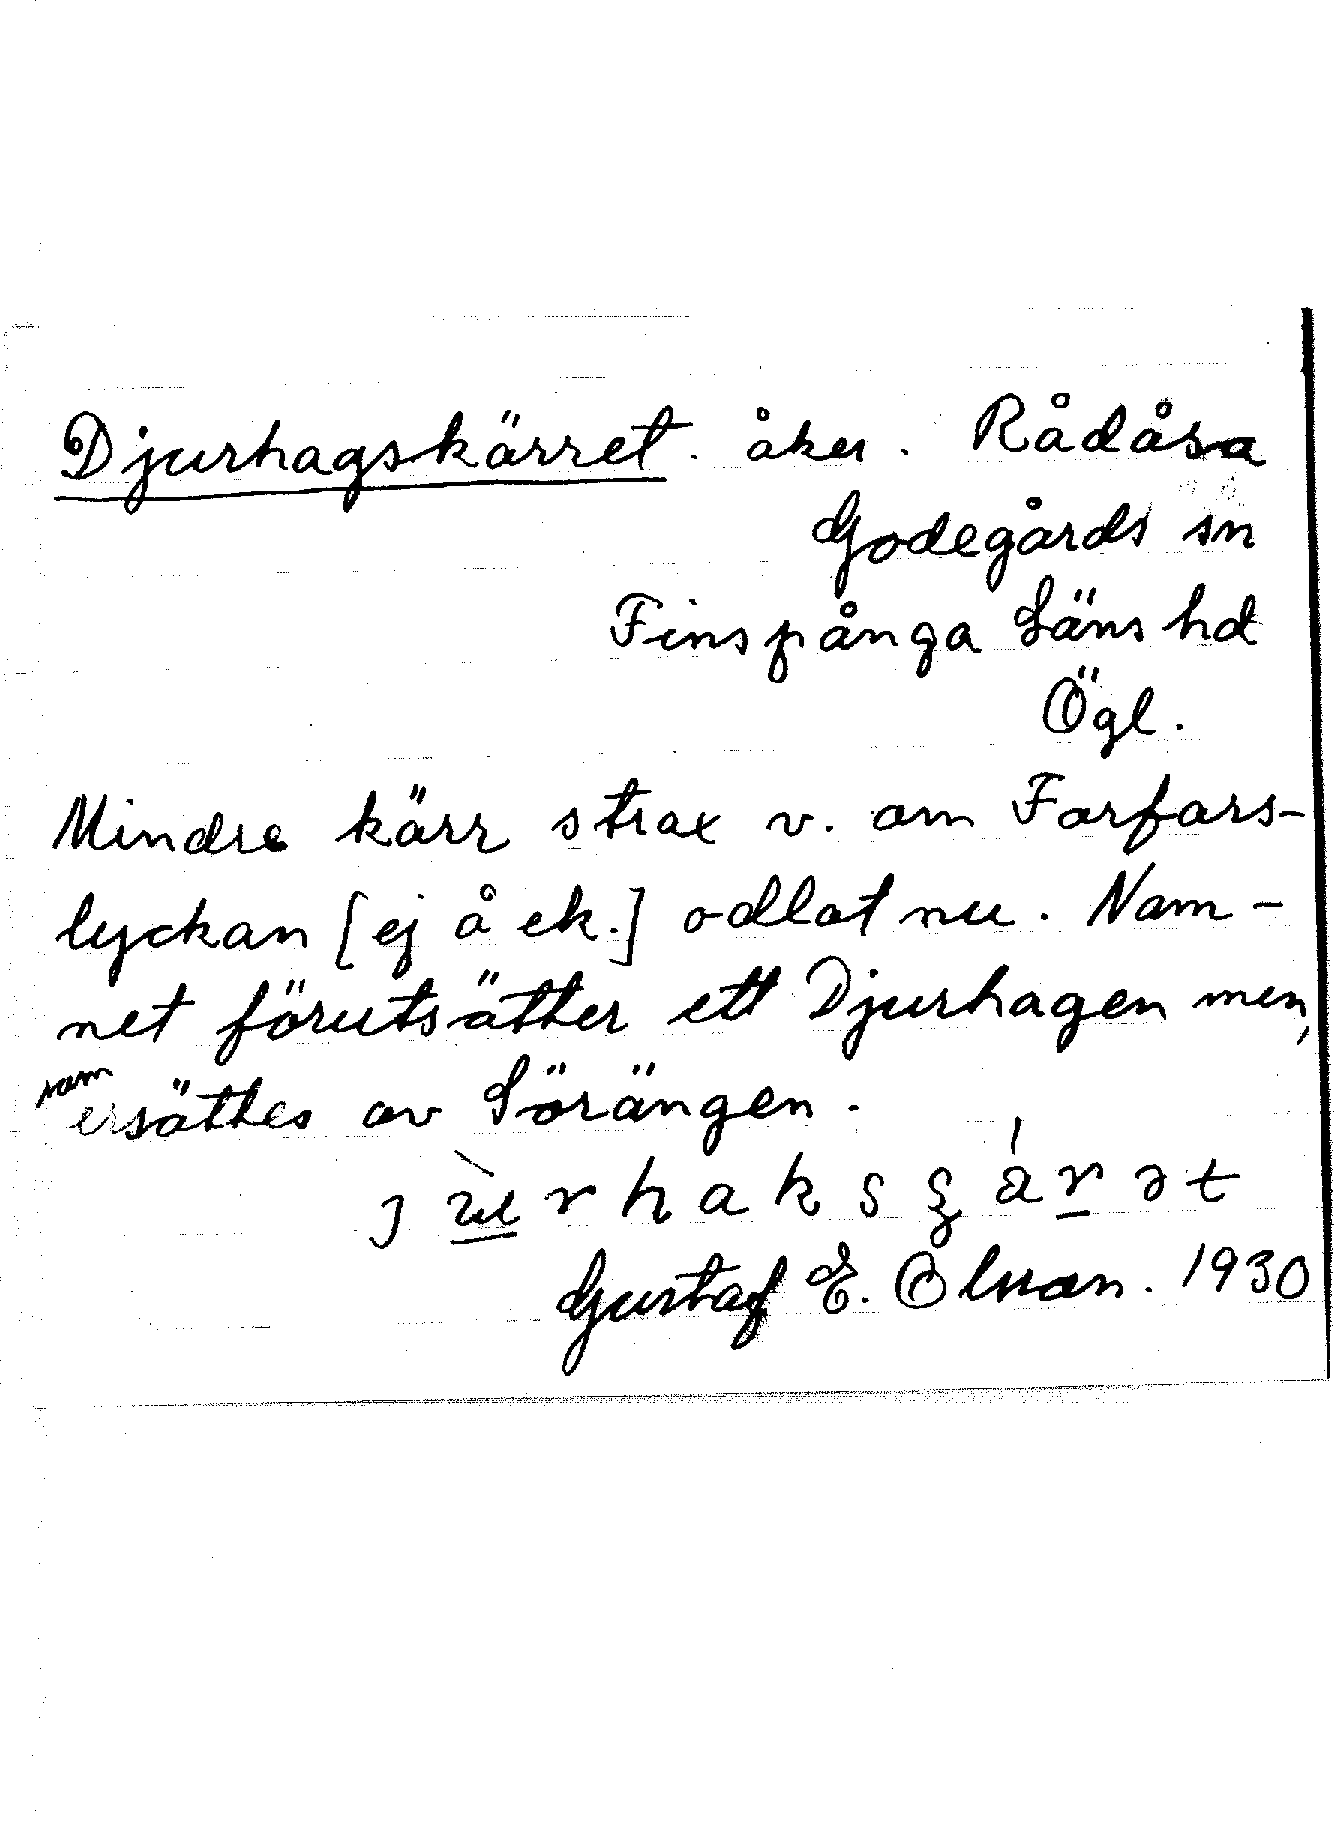 Djurhagskärret. åker. Rådåsa
Godegårds sn
Finspånga Läns hd
Ögl.
Mindre kärr strax v. om Farfars-
lyckan [ej å ek.] odlat nu. Nam-
net förutsätter ett Djurhagen men,
som
ersättes av Sörängen.
Gustaf E. Olsson. 1930